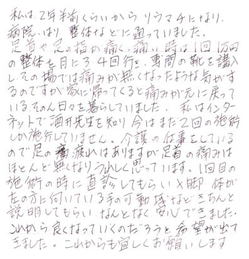 私は2年半前くらいからリウマチになり、
病院、はり、整体などに通っていました。
足首や足の指が痛く、痛い時は1回1万円
の整体を月に3、4回行き、専門の靴を購入し
その場では痛みが無くなったような気がす
るのですが家に帰ってくると痛みが元に戻って
いるそんな日々を暮らしていました。私はインター
ネットで酒井先生を知り今はまだ2回の施術
しか施行していません。介護の仕事をしている
ので足の疲れはありますが足首の痛みは
ほとんど無くなりうれしく思っています。1回目の
施術の時に直診してもらいX脚、体が
左の方に行いている、手の可動域などきちんと
説明してもらいなんとなく安心できました。
これから良くなっていくのだろうと希望が出て
きました。これからも宜しくお願いします